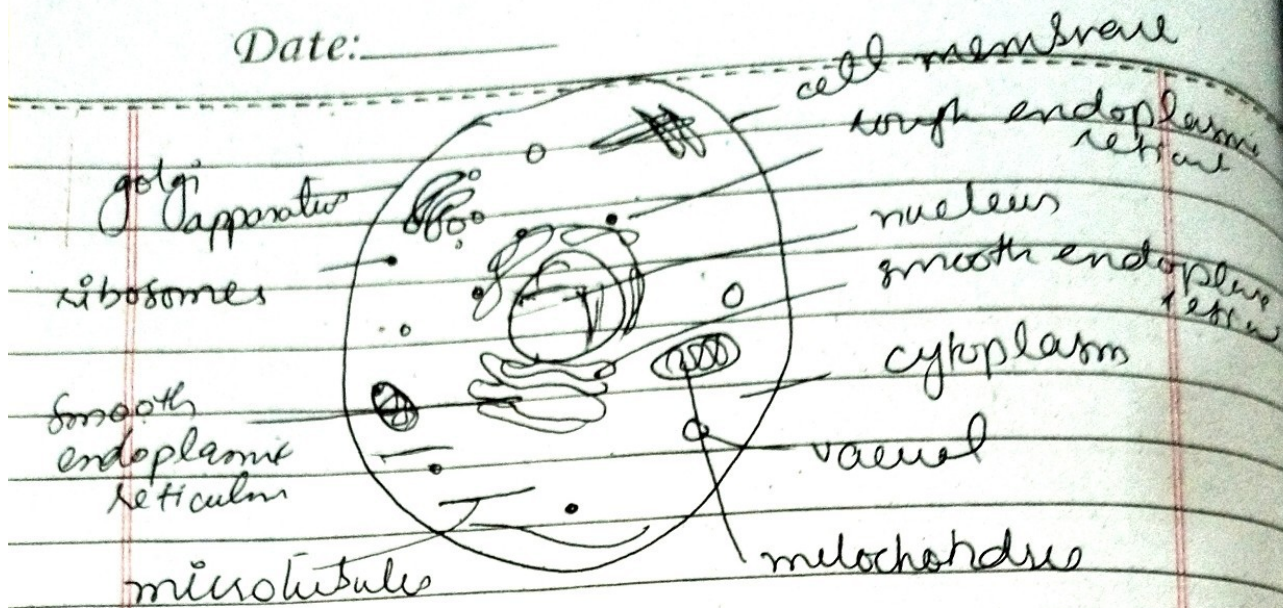 Date:
cell membrane
rough endoplasmi
golgi
apparatus
nucleus
smooth endoplasmi
ribosomes
cytoplasm
smooth
endoplamic
reticulm
vacuol
mitochondria
microtubules